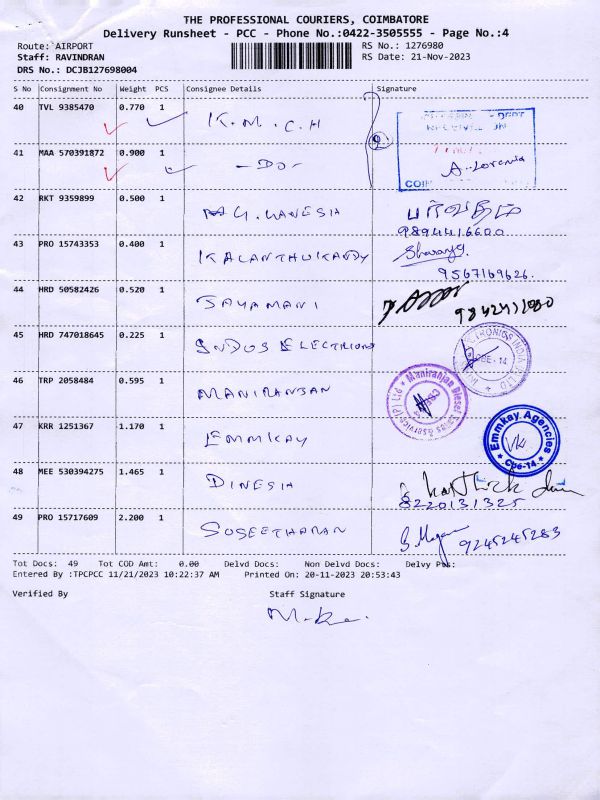 THE PROFESSIONAL COURIERS, COIMBATORE
Delivery Runsheet - PCC - Phone No.:0422-3505555 - Page No.:4
Route: AIRPORT
RS No.: 1276980
Staff: RAVINDRAN
RS Date: 21-Nov-2023
DRS No.: DCJB127698004
S No Consignment No Weight PCS Consignee Details Signature
40 TVL 9385470 0.770 1 K.M.C.H
41 MAA 570391872 0.900 1 -DO-
42 RKT 9359899 0.500 1
9894416600
43 PRO 15743353 0.400 1 KALANTHUKANDY
9567169626.
44 HRD 50582426 0.520 1 JAYAMANI
45 HRD 747018645 0.225 1
CBE-14
46 TRP 2058484 0.595 1 MANIRANJAN
Maniranjan Diesel Sales & Service (P) Ltd
47 KRR 1251367 1.170 1 EMMKAY
Emmkay Agencies
Cbe-14
48 MEE 530394275 1.465 1 DINESH
8220131325
49 PRO 15717609 2.200 1 SUSEETHARAN
9245245283
Tot Docs: 49 Tot COD Amt: 0.00 Delvd Docs: Non Delvd Docs: Delvy Pcs:
Entered By :TPCPCC 11/21/2023 10:22:37 AM Printed On: 20-11-2023 20:53:43
Verified By Staff Signature